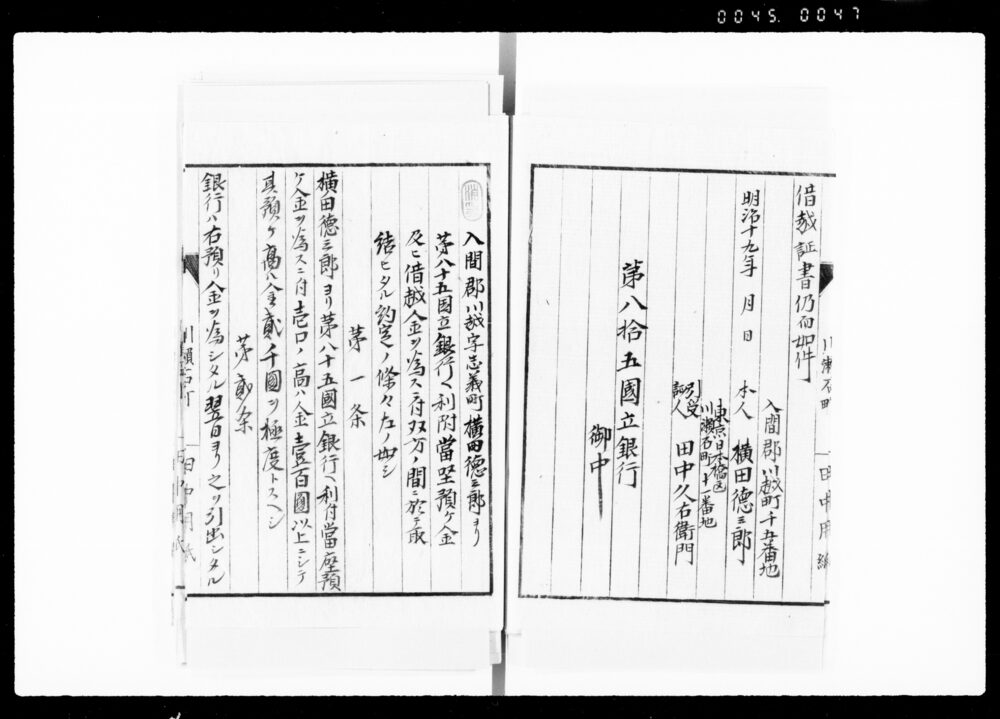 0045. 0047
借越証書仍而如件
明治十九年 月 日
入間郡川越町千五番地
本人 横田徳三郎
東京日本橋区
川瀬石町十一番地
引受
証人 田中久右衛門
第八拾五國立銀行
御中
入間郡川越字志義町横田徳三郎ヨリ
第八十五國立銀行ヘ利附當坐預ケ金
及ヒ借越金ヲ為スニ付双方ノ間ニ於テ取
結ヒタル約定ノ條々左ノ如シ
第一条
横田徳三郎ヨリ第八十五國立銀行ヘ利付當座預
ケ金ヲ為スニ付壱口ノ高ハ金壹百圓以上ニシテ
其預ケ高ハ金貳千圓ヲ極度トスヘシ
第貳条
銀行ハ右預リ金ヲ為シタル翌日ヨリ之ヲ引出シタル